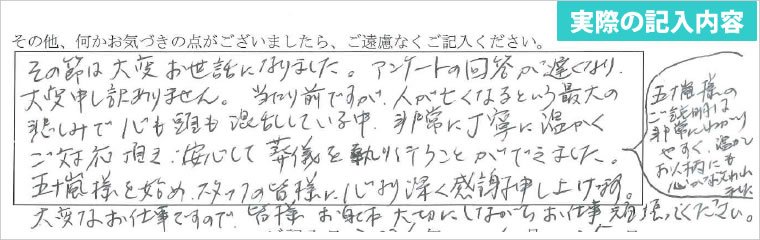 実際の記入内容
その他、何かお気づきの点がございましたら、ご遠慮なくご記入ください。
その節は大変お世話になりました。アンケートの回答が遅くなり、
大変申し訳ありません。当たり前ですが、人が亡くなるという最大の
悲しみで心も頭も混乱している中、非常に丁寧に温かく
ご対応頂き、安心して葬儀を執り行うことができました。
五十嵐様を始め、スタッフの皆様に心より深く感謝申し上げます。
大変なお仕事ですので、皆様お身体大切にしながらお仕事頑張ってください。
五十嵐様の
ご説明は
非常にわかり
やすく、温かい
お人柄にも
心が救われ
ました